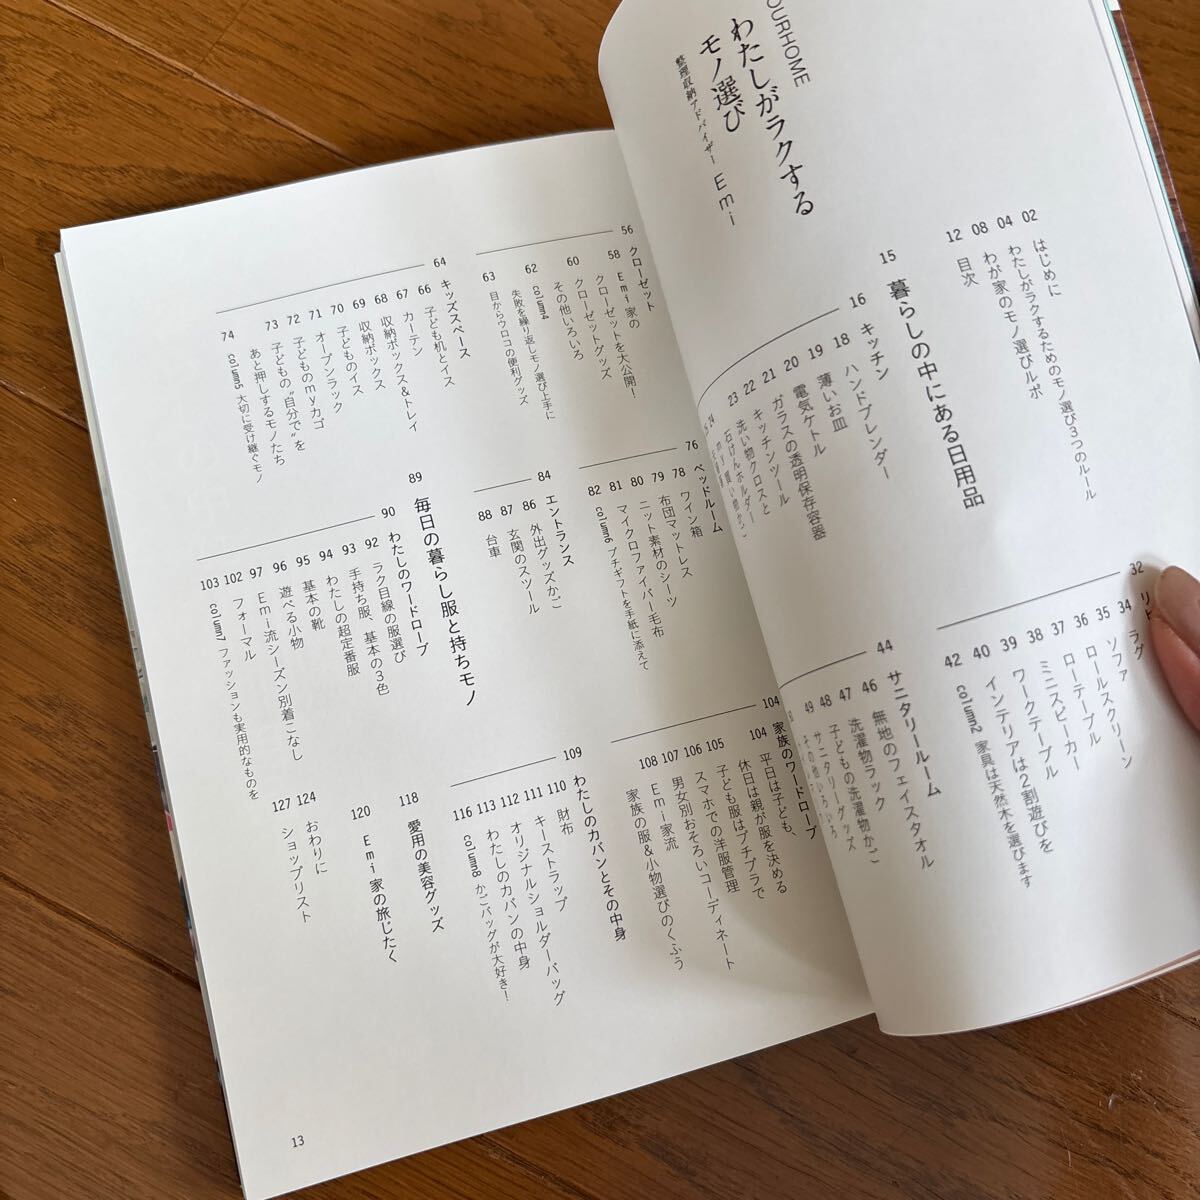 OURHOME
わたしがラクする
モノ選び
整理収納アドバイザー Emi
02 はじめに
04 わたしがラクするためのモノ選び3つのルール
08 わが家のモノ選びルポ
12 目次
15 暮らしの中にある日用品
16 キッチン
18 ハンドブレンダー
19 薄いお皿
20 電気ケトル
21 ガラスの透明保存容器
22 キッチンツール
23 洗い物クロスと
石けんホルダー
24
32
34 ラグ
35 ソファ
36 ロールスクリーン
37 ローテーブル
38 ミニスピーカー
39 ワークテーブル
40 インテリアは2割遊びを
42 column2 家具は天然木を選びます
44 サニタリールーム
46 無地のフェイスタオル
47 洗濯物ラック
48 子どもの洗濯物かご
49 サニタリーグッズ
その他いろいろ
56 クローゼット
58 Emi家の
クローゼットを大公開！
60 クローゼットグッズ
その他いろいろ
62 column4
失敗を繰り返しモノ選び上手に
63 目からウロコの便利グッズ
64 キッズスペース
66 子ども机とイス
67 カーテン
68 収納ボックス&トレイ
69 収納ボックス
70 子どものイス
71 オープンラック
72 子どものmyカゴ
73 子どもの“自分で”を
あと押しするモノたち
74 column5 大切に受け継ぐモノ
76 ベッドルーム
78 ワイン箱
79 布団マットレス
80 ニット素材のシーツ
81 マイクロファイバー毛布
82 column6 プチギフトを手紙に添えて
84 エントランス
86 外出グッズかご
87 玄関のスツール
88 台車
89 毎日の暮らし服と持ちモノ
90 わたしのワードローブ
92 ラク目線の服選び
93 手持ち服、基本の3色
94 わたしの超定番服
95 基本の靴
96 遊べる小物
97 Emi流シーズン別着こなし
102 フォーマル
103 column7 ファッションも実用的なものを
104 家族のワードローブ
104 平日は子ども、
休日は親が服を決める
105 子ども服はプチプラで
106 スマホでの洋服管理
107 男女別おそろいコーディネート
108 Emi家流
家族の服&小物選びのくふう
109 わたしのカバンとその中身
110 財布
111 キーストラップ
112 オリジナルショルダーバッグ
113 わたしのカバンの中身
116 column8 かごバッグが大好き！
118 愛用の美容グッズ
120 Emi家の旅じたく
124 おわりに
127 ショップリスト
13